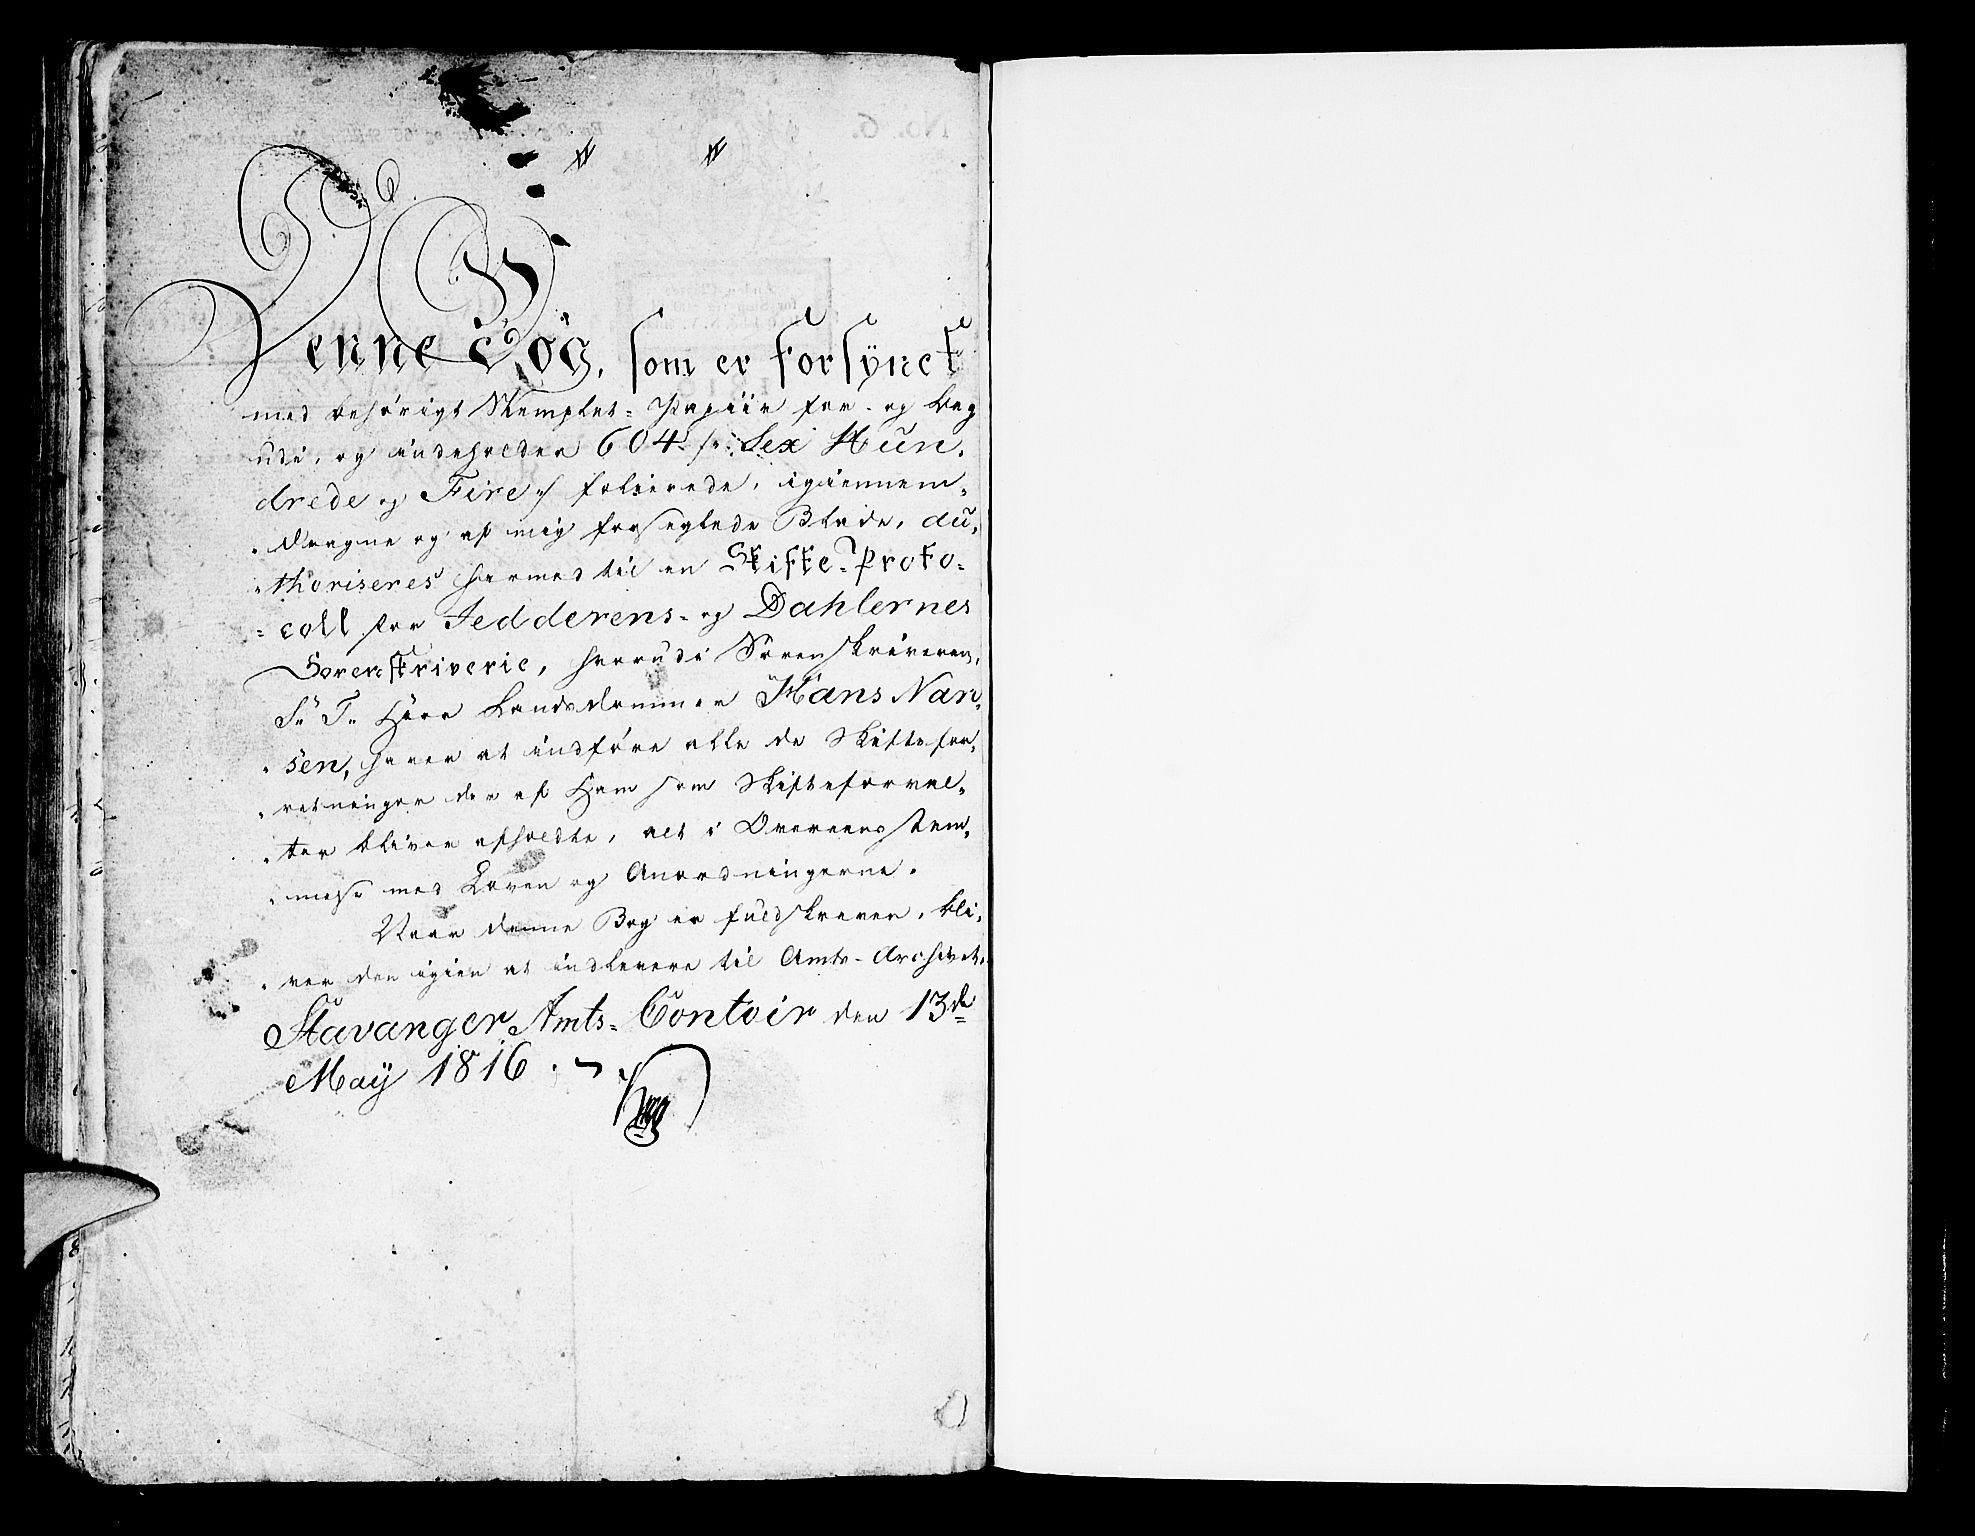 Denne Bog, som er forsÿnet
med behørigt Stemplet-Papiir for- og bag
udi, og indeholder 604 /: Sex Hun-
drede og Fire :/ folierede, igiennem-
-dragne og af mig forseglede Blade, au-
-thoriseres hermed til en Skifte-Proto-
-coll for Jedderens- og Dahlernes
Sorenskriverie, hvorudi Sorenskriveren,
S. T. Herr Landsdommer Hans Nan-
-sen, haver at indføre alle de Skiftefor-
-retninger der af Ham som Skifteforval-
-ter bliver afholdte, alt i Overeenstem-
-melse med Loven og Anordningerne.
Naar denne Bog er fuldskreven, bli-
-ver den igien at indlevere til Amts-Archivet.
Stavanger Amts-Contoir den 13de
Maÿ 1816.
No. 6.